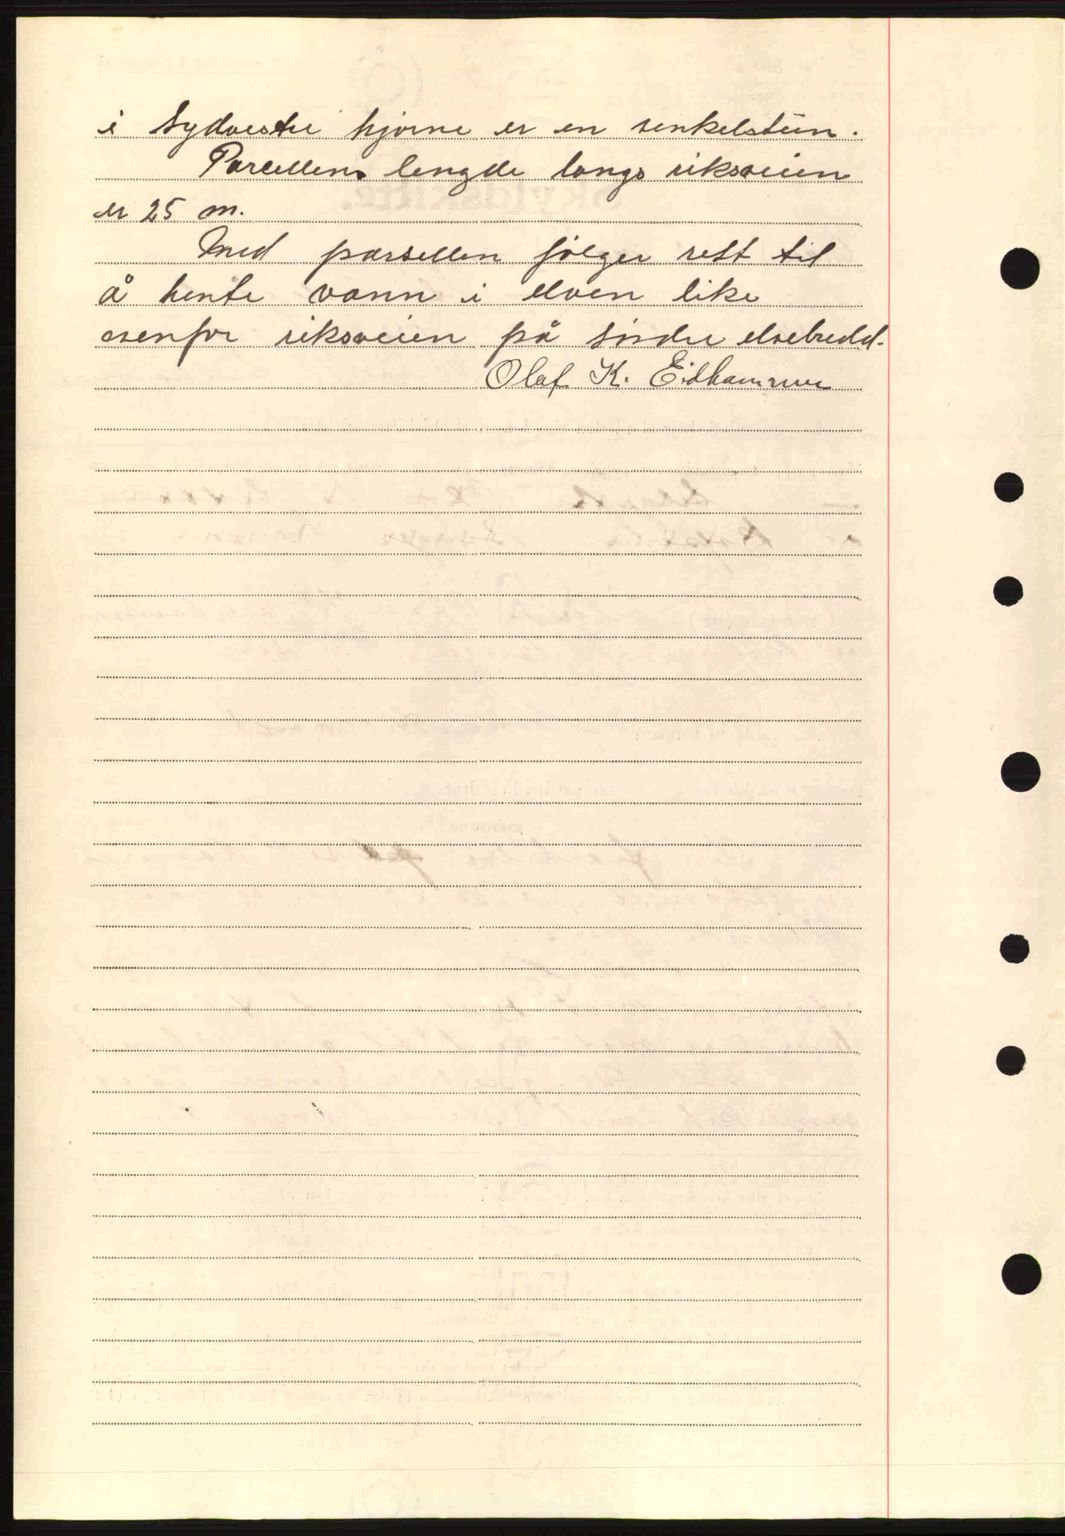 i Sydvestre hjørne er en senkelstein.
Parcellens lengde langs riksveien
er 25 m.
Med parsellen følger rett til
å hente vann i elven like
ovenfor riksveien på søndre elvebredd.
Olaf K. Eidhammer